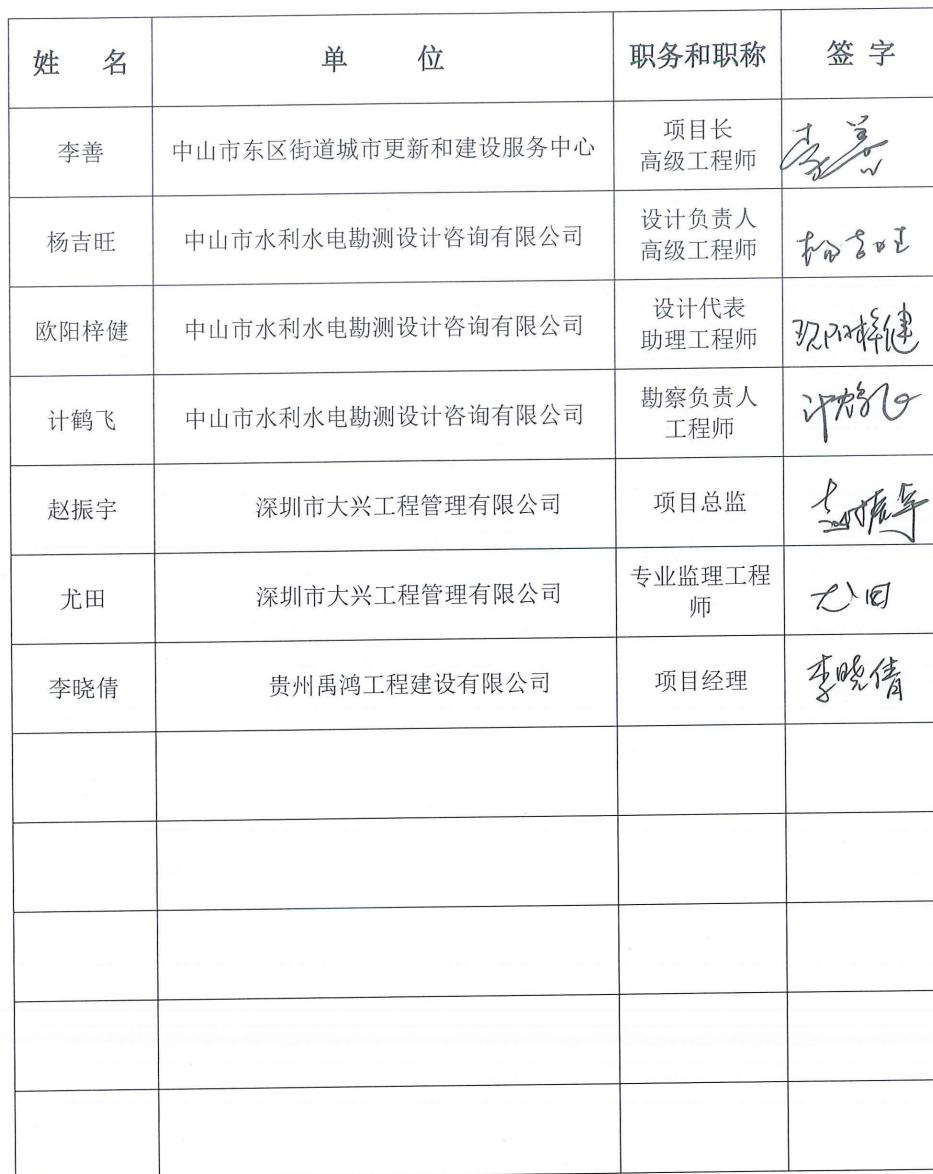 姓 名 单 位 职务和职称 签 字
李善 中山市东区街道城市更新和建设服务中心 项目长 李善
高级工程师
杨吉旺 中山市水利水电勘测设计咨询有限公司 设计负责人 杨吉旺
高级工程师
欧阳梓健 中山市水利水电勘测设计咨询有限公司 设计代表 欧阳梓健
助理工程师
计鹤飞 中山市水利水电勘测设计咨询有限公司 勘察负责人 计鹤飞
工程师
赵振宇 深圳市大兴工程管理有限公司 项目总监 赵振宇
尤田 深圳市大兴工程管理有限公司 专业监理工程 尤田
师
李晓倩 贵州禹鸿工程建设有限公司 项目经理 李晓倩